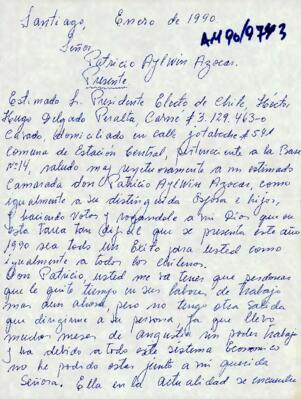 Santiago, Enero de 1990
AM 90/9743
Señor
Patricio Aylwin Azocar.
Presente
Estimado Sr. Presidente Electo de Chile, Héctor
Hugo Delgado Peralta, Carné # 3.129.463-0
Casado, domiciliado en calle Jotabeche # 541
comuna de Estación Central, perteneciente a la Base
Nº14, saludo muy respetuosamente a mi estimado
Camarada don Patricio Aylwin Azocar, como
igualmente a su distinguida Esposa e hijos,
haciendo Votos y rogandole a mi Dios que en
esta tarea tan dificil que se presenta este año
1990 sea todo un Exito para usted como
igualmente a todos los chilenos.
Don Patricio, usted me va tener que perdonar
que le quite tiempo en sus labores de trabajo
mas aun ahora, pero no tengo otra Salida
que dirigirme a su persona, ya que llevo
muchos meses de angustia sin poder trabajar
y ha debido a todo este sistema Economico
no he podido estar junto a mi querida
Señora. Ella en la Actualidad se encuentra